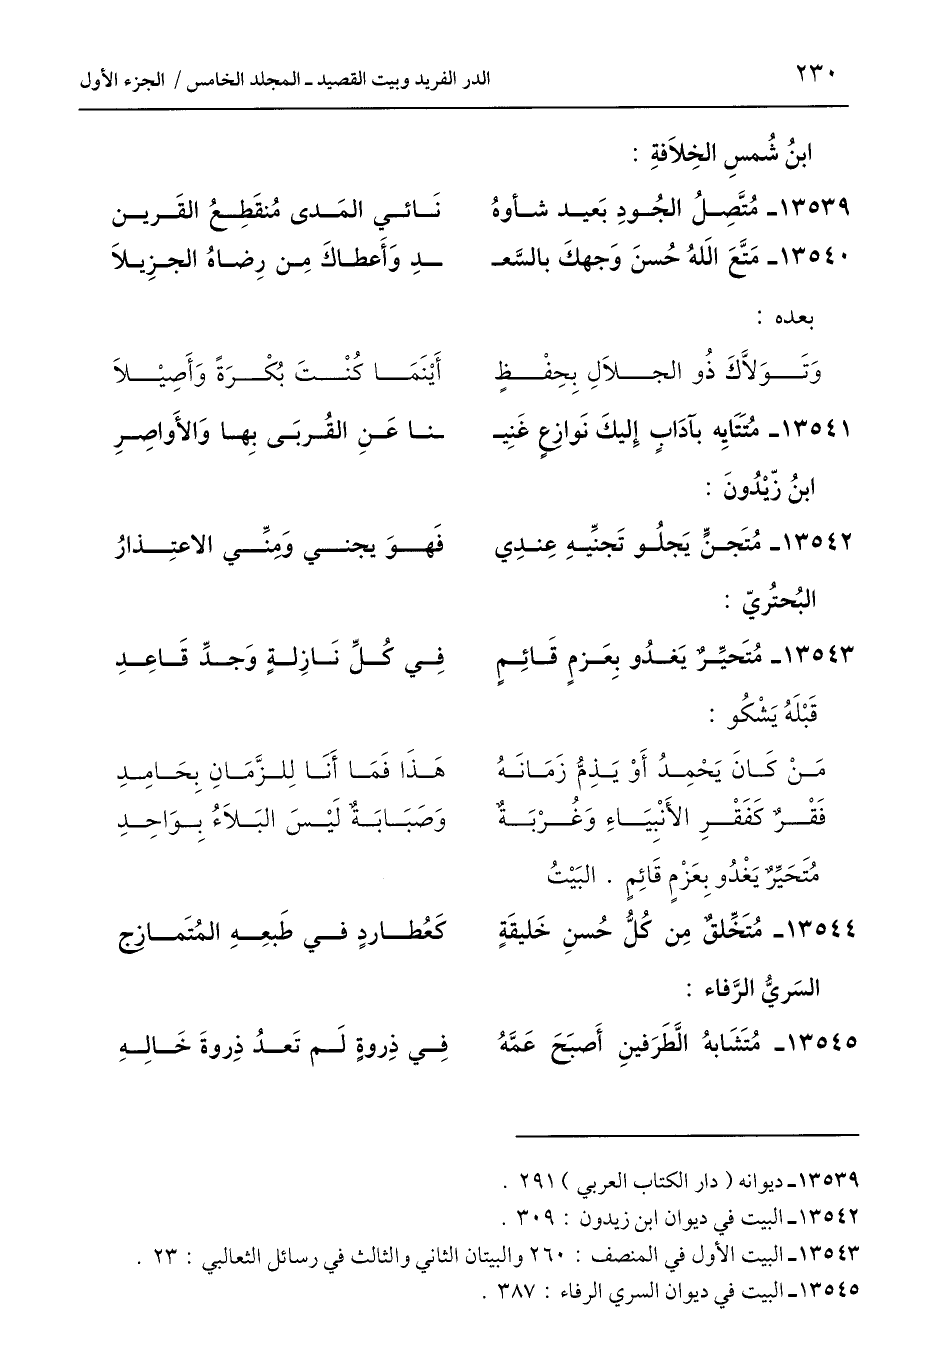 ٢٣٠ الدر الفريد وبيت القصيد ـ المجلد الخامس / الجزء الأول
ابنُ شُمسِ الخِلاَفةِ :
١٣٥٣٩ـ مُتَّصِلُ الجُودِ بَعيد شأوهُ نَائي المَدى مُنقَطِعُ القَرين
١٣٥٤٠ـ مَتَّعَ اللهُ حُسنَ وَجهكَ بالسَّعـ ـدِ وَأَعطاكَ مِن رِضاهُ الجزيلاَ
بعده :
وَتَوَلاَّكَ ذُو الجلاَلِ بِحِفْظٍ أَيْنَمَا كُنْتَ بُكْرَةً وَأَصِيْلاَ
١٣٥٤١ـ مُتَتَايِه بآدَابٍ إِليكَ نَوازِعٍ غَنِيـ ـنا عَنِ القُربَى بِها وَالأَواصِرِ
ابنُ زَيْدُونَ :
١٣٥٤٢ـ مُتَجنٍّ يَحلُو تَجنِّيهِ عِندِي فَهوَ يجني وَمِنِّي الاعتِذارُ
البُحتُريّ :
١٣٥٤٣ـ مُتَحيِّرٌ يَغدُو بِعَزمٍ قَائِمٍ فِي كُلِّ نَازِلةٍ وَجدٍّ قَاعِدِ
قَبْلَهُ يَشْكُو :
مَنْ كَانَ يَحْمِدُ أَوْ يَذِمُّ زَمَانَهُ هَذَا فَمَا أَنَا لِلزَّمَانِ بِحَامِدِ
فَقْرٌ كَفَقْرِ الأَنْبِيَاءِ وَغُرْبَةٌ وَصَبَابَةٌ لَيْسَ البَلاَءُ بِوَاحِدِ
مُتَحَيِّرٌ يَغْدُو بِعَزْمٍ قَائِمٍ . البَيْتُ
١٣٥٤٤ـ مُتَخَّلقٌ مِن كُلُّ حُسنِ خَليقَةٍ كَعُطاردٍ في طَبعِهِ المُتَمازِجِ
السَريُّ الرَّفاء :
١٣٥٤٥ـ مُتَشَابهُ الطَّرَفينِ أَصبَحَ عَمَّهُ فِي ذِروةٍ لَم تَعدُ ذِروةَ خَالِهِ
١٣٥٣٩ـ ديوانه ( دار الكتاب العربي ) ٢٩١ .
١٣٥٤٢ـ البيت في ديوان ابن زيدون : ٣٠٩ .
١٣٥٤٣ـ البيت الأول في المنصف : ٢٦٠ والبيتان الثاني والثالث في رسائل الثعالبي : ٢٣ .
١٣٥٤٥ـ البيت في ديوان السري الرفاء : ٣٨٧ .